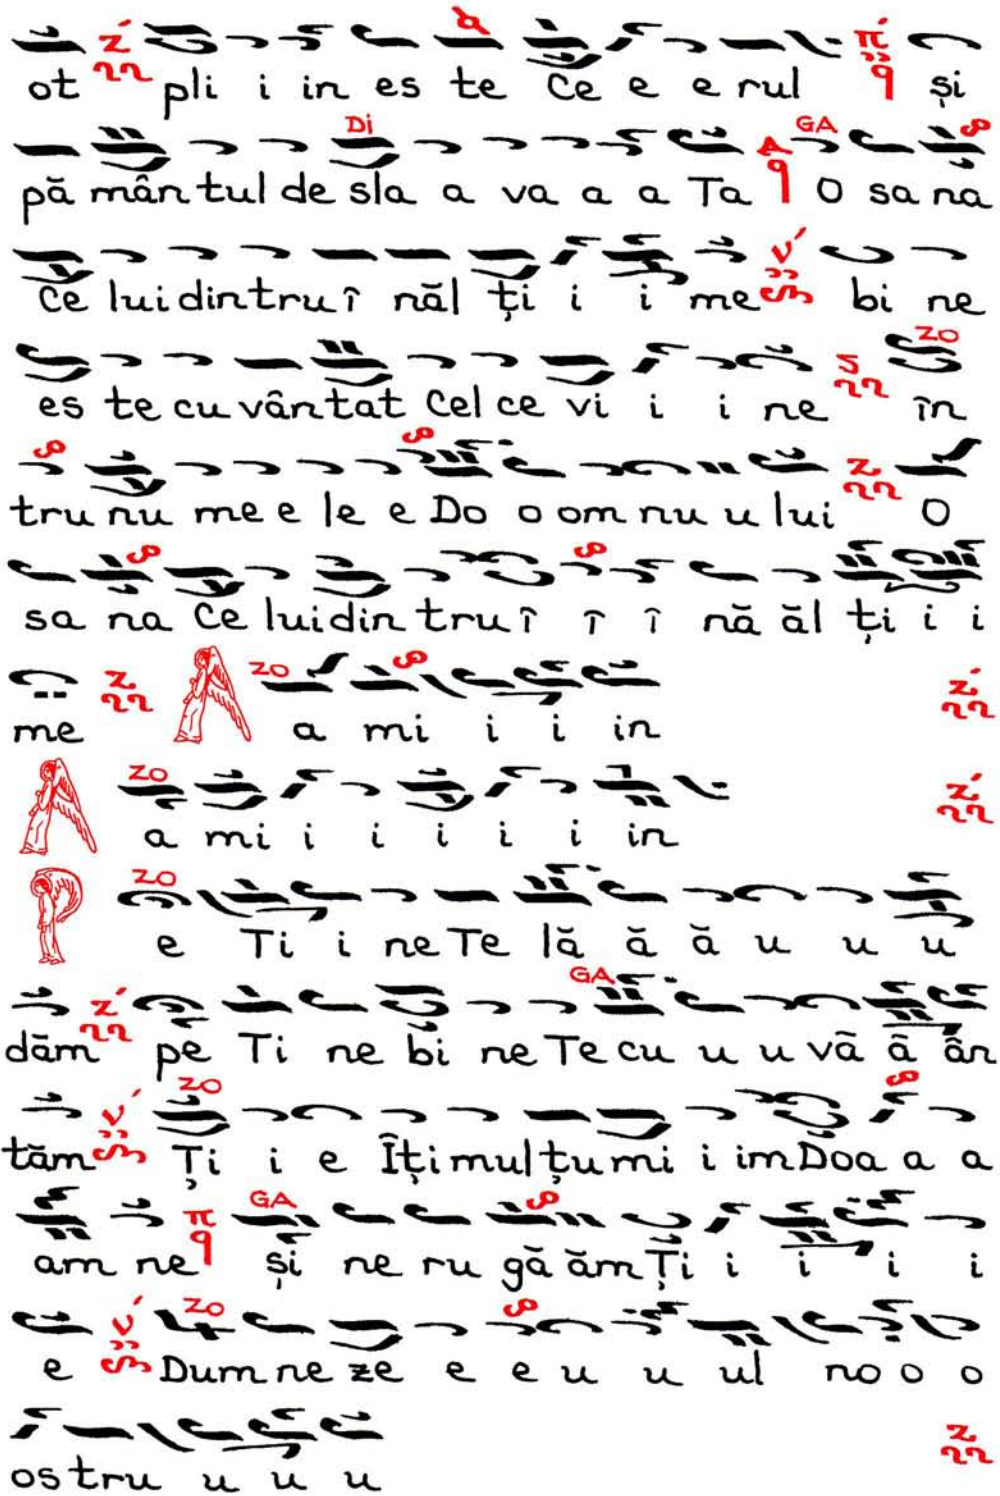 ot pli i in es te Ce e e rul și
Di GA
pă mân tul de sla a va a a Ta O sa na
Ce lui din tru î năl ți i i me bi ne
ZO
es te cu vân tat Cel ce vi i i ne în
tru nu me e le e Do o om nu u lui O
sa na Ce lui din tru î î î nă ăl ți i i
ZO
me A a mi i i in
ZO
A a mi i i i i i in
ZO
P e Ti i ne Te lă ă ă u u u
GA
dăm pe Ti ne bi ne Te cu u u vâ â ân
ZO
tăm Ți i e Îți mul țu mi i im Doa a a
GA
am ne și ne ru gă ăm Ți i i i i
ZO
e Dum ne ze e e u u ul no o o
os tru u u u